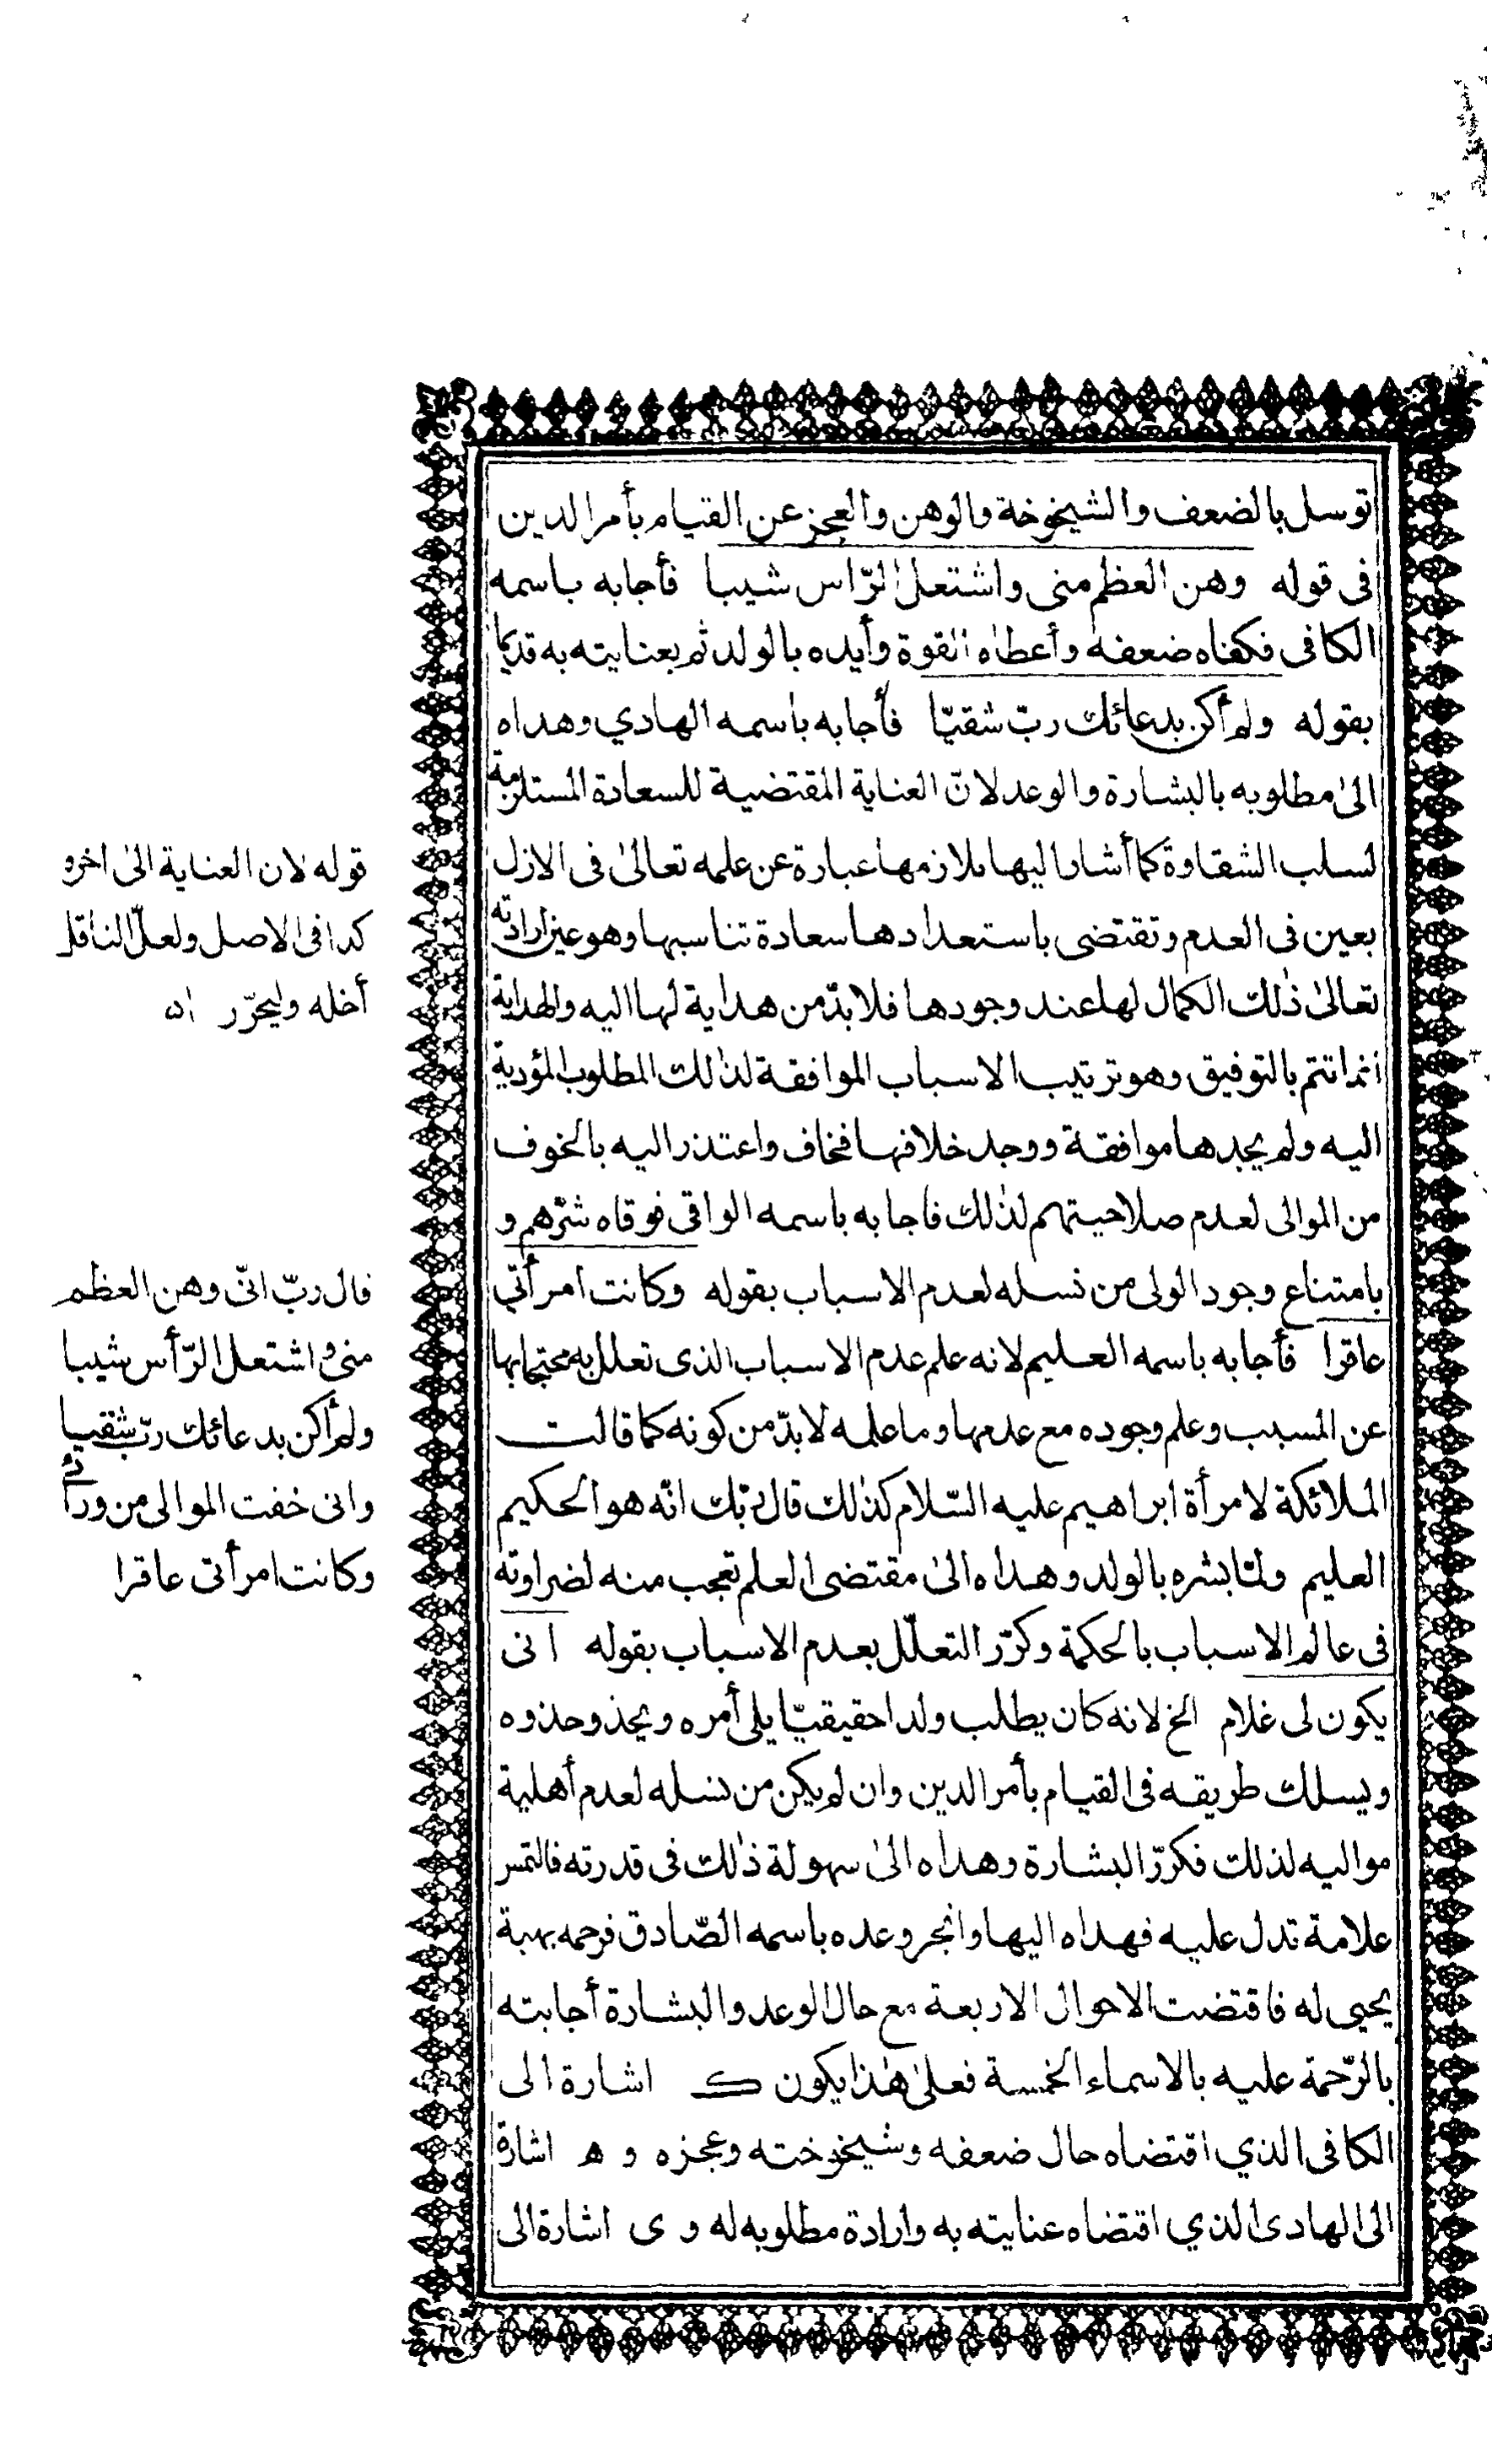 توسل بالضعف والشيخوخة والوهن والعجز عن القيام بأمر الدين
فى قوله وهن العظم منى واشتعل الرّاس شيبا فأجابه باسمه
الكافى فكفاه ضعفه وأعطاه القوة وأيده بالولد ثم بعنايته به قديما
بقوله ولم أكن بدعائك ربّ شقيّا فأجابه باسمه الهادي وهداه
الىٰ مطلوبه بالبشارة والوعد لانّ العناية المقتضية للسعادة المستلزمة
لسلب الشقاوة كما أشار اليها بملازمها عبارة عن علمه تعالىٰ فى الازل
بعين فى العدم وتقتضى باستعدادها سعادة تناسبها وهو عين ارادته
تعالىٰ ذٰلك الكمال لها عند وجودها فلا بدّ من هداية لها اليه والهداية
انما تتم بالتوفيق وهو ترتيب الاسباب الموافقة لذٰلك المطلوب المؤدية
اليه ولم يجدها موافقة ووجد خلافها فخاف واعتذر اليه بالخوف
من الموالى لعدم صلاحيتهم لذٰلك فاجابه باسمه الواقى فوقاه شرّهم و
بامتناع وجود الولى من نسله لعدم الاسباب بقوله وكانت امرأتي
عاقرا فأجابه باسمه العليم لانه علم عدم الاسباب الذى تعلل به محتجابها
عن المسبب وعلم وجوده مع عدمها وما علمه لا بدّ من كونه كما قالت
الملائكة لامرأة ابراهيم عليه السّلام كذٰلك قال ربّك انّه هو الحكيم
العليم ولمّا بشره بالولد وهداه الىٰ مقتضى العلم تعجب منه لضراوته
فى عالم الاسباب بالحكمة وكرّر التعلّل بعدم الاسباب بقوله انى
يكون لى غلام الخ لانه كان يطلب ولدا حقيقيّا يلى أمره ويحذو حذوه
ويسلك طريقه فى القيام بأمر الدين وان لم يكن من نسله لعدم أهلية
مواليه لذلك فكرّر البشارة وهداه الىٰ سهولة ذٰلك فى قدرته فالتمس
علامة تدل عليه فهداه اليها وانجر وعده باسمه الصّادق فرحمه بهبة
يحيى له فاقتضت الاحوال الاربعة مع حال الوعد والبشارة أجابته
بالرّحمة عليه بالاسماء الخمسة فعلىٰ هٰذا يكون ك اشارة الى
الكافى الذي اقتضاه حال ضعفه وشيخوخته وعجزه و ه اشارة
الى الهادى الذي اقتضاه عنايته به وارادة مطلوبه له و ى اشارة الى
قوله لان العناية الىٰ اخره
كذا فى الاصل ولعلّ الناقل
أخله وليحرّر اه
قال ربّ انّى وهن العظم
منى واشتعل الرّأس شيبا
ولم أكن بدعائك ربّ شقيا
وانى خفت الموالى من ورائى
وكانت امرأتى عاقرا